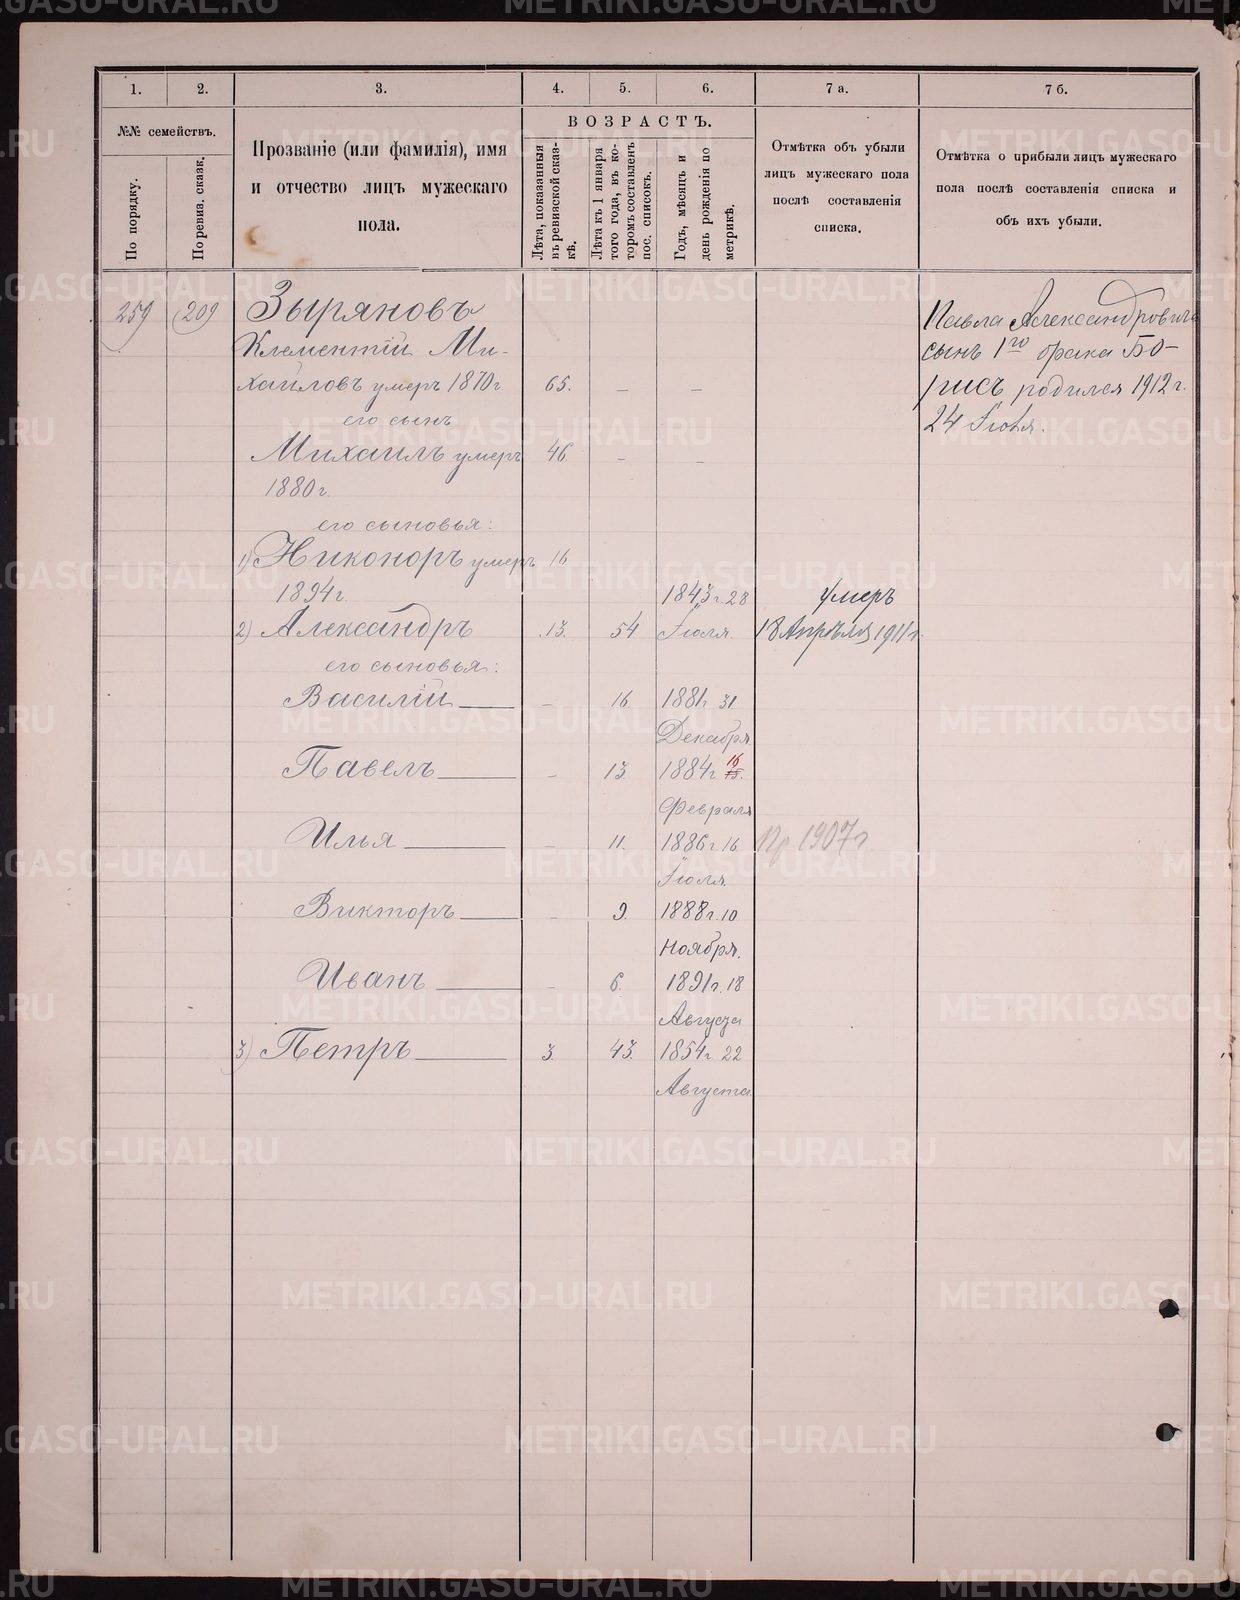 1. 2. 3. 4. 5. 6. 7 а. 7 б.
№№ семействъ.
По порядку.
По ревиз. сказк.
Прозваніе (или фамилія), имя
и отчество лицъ мужескаго
пола.
ВОЗРАСТЪ.
Лѣта, показанныя
въ ревизской сказ-
кѣ.
Лѣта къ 1 января
того года, въ ко-
торомъ составленъ
пос. списокъ.
Годъ, мѣсяцъ и
день рожденія по
метрикѣ.
Отмѣтка объ убыли
лицъ мужескаго пола
послѣ составленія
списка.
Отмѣтка о прибыли лицъ мужескаго
пола послѣ составленія списка и
объ ихъ убыли.
259 209 Зыряновъ
Клементій Ми-
хайловъ умеръ 1870 г. 65. – –
его сынъ
Михаилъ умеръ 46. – –
1880 г.
его сыновья:
1) Никоноръ умеръ 16
1894 г.
2) Александръ 13. 54 1843 г. 28
Іюля.
умеръ
18 Апрѣля 1911 г.
его сыновья:
Василій – 16. 1881 г. 31
Декабря
Павелъ – 13. 1884 г. 16 15.
Февраля
Илья – 11. 1886 г. 16. Пр 1907 г.
Іюля.
Викторъ – 9. 1888 г. 10
Ноября.
Иванъ – 6. 1891 г. 18
Августа
3) Петръ 3. 43. 1854 г. 22
Августа
Павла Александровича
сынъ 1го брака Бо-
рисъ родился 1912 г.
24 Іюля.
METRIKI.GASO-URAL.RU